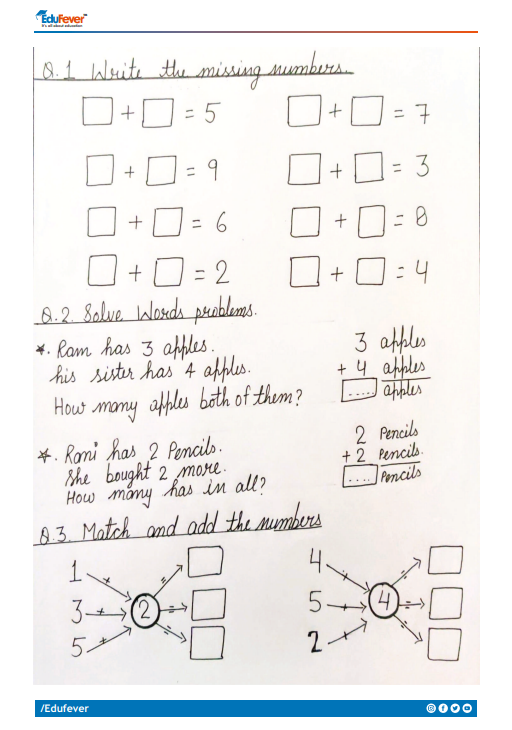 EduFever
It's all about education
Q.1 Write the missing numbers.
+ = 5 + = 7
+ = 9 + = 3
+ = 6 + = 8
+ = 2 + = 4
Q.2. Solve Words problems.
*. Ram has 3 apples.
his sister has 4 apples.
How many apples both of them?
3 apples
+ 4 apples
..... apples
*. Rani has 2 Pencils.
She bought 2 more.
How many has in all?
2 Pencils
+2 Pencils.
.... Pencils
Q.3. Match and add the numbers
1
3 + 2 =
5
4
5 + 4 =
2
/Edufever